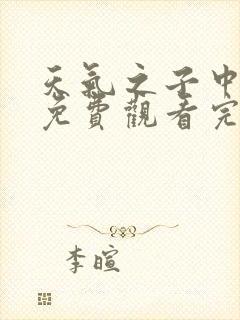 天氣之子中
免費觀看完
李暄